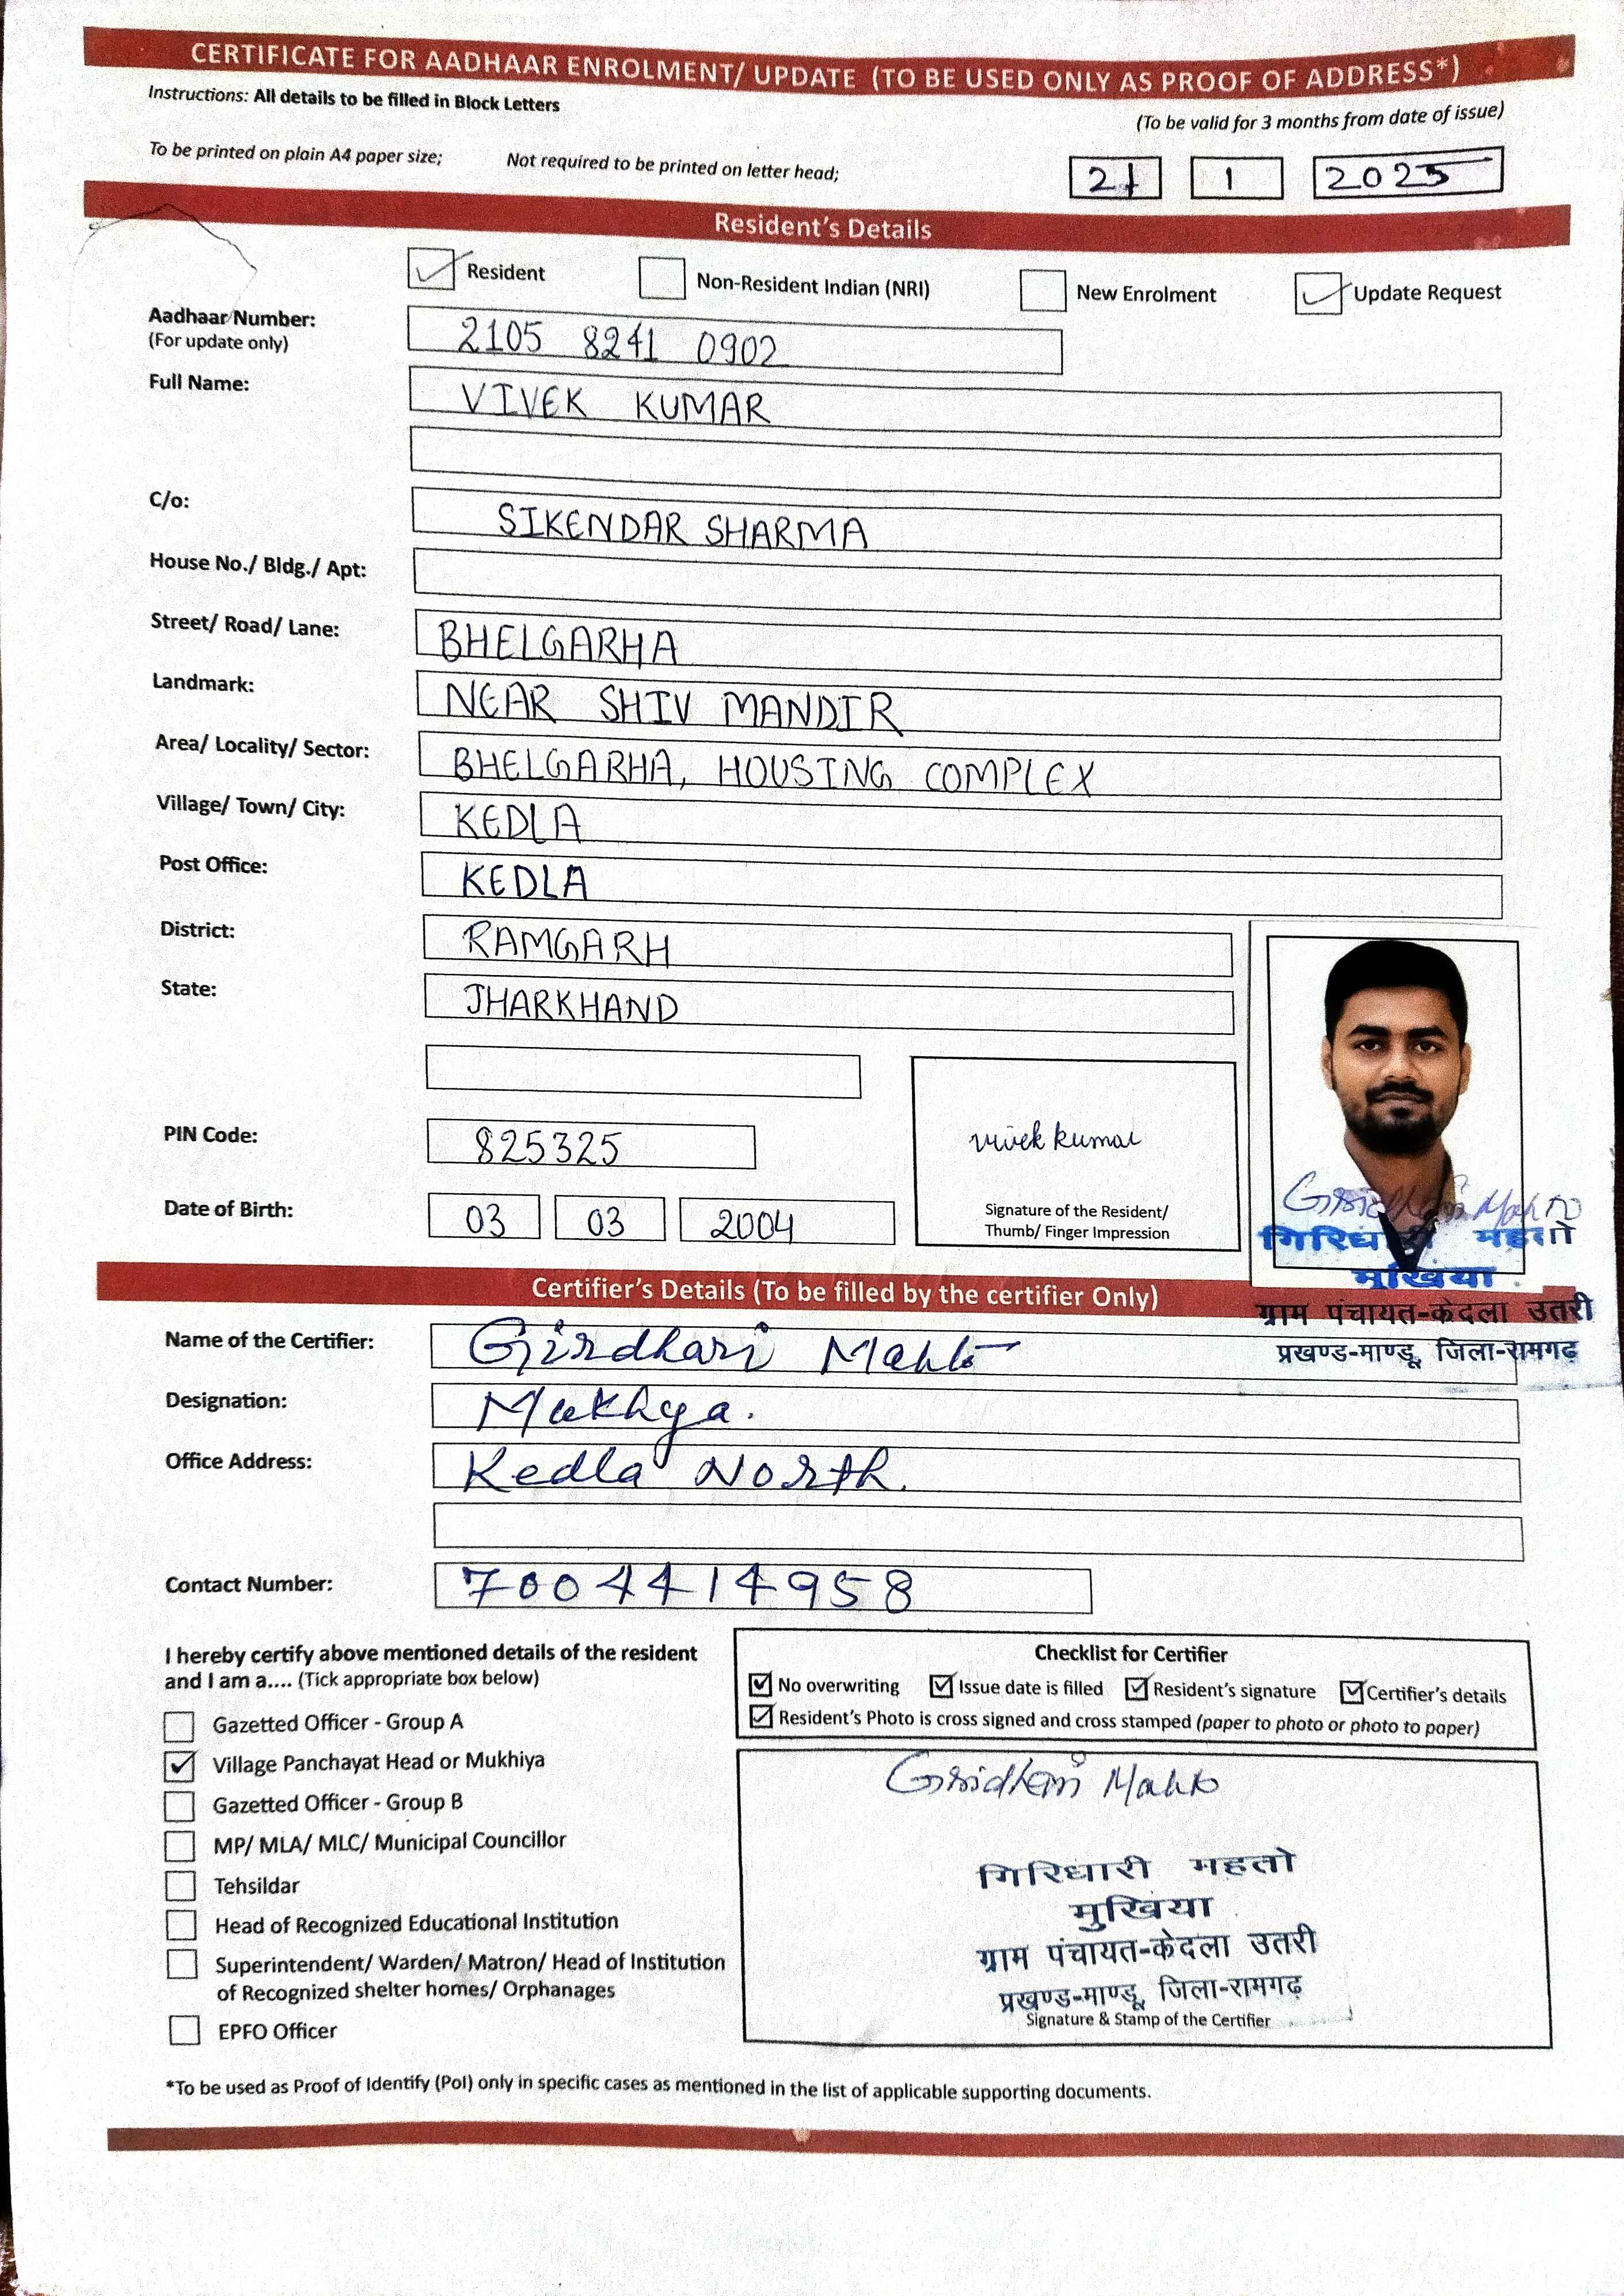 CERTIFICATE FOR AADHAAR ENROLMENT/ UPDATE (TO BE USED ONLY AS PROOF OF ADDRESS*)
Instructions: All details to be filled in Block Letters
(To be valid for 3 months from date of issue)
To be printed on plain A4 paper size; Not required to be printed on letter head;
21 1 2025
Resident's Details
Resident Non-Resident Indian (NRI) New Enrolment Update Request
Aadhaar Number: 2105 8241 0902
(For update only)
Full Name: VIVEK KUMAR
C/o: SIKENDAR SHARMA
House No./ Bldg./ Apt:
Street/ Road/ Lane: BHELGARHA
Landmark: NEAR SHIV MANDIR
Area/ Locality/ Sector: BHELGARHA, HOUSING COMPLEX
Village/ Town/ City: KEDLA
Post Office: KEDLA
District: RAMGARH
State: JHARKHAND
PIN Code: 825325
vivek kumar
Date of Birth: 03 03 2004
Signature of the Resident/
Thumb/ Finger Impression
Giridhari Mahto
गिरिधारी महतो
मुखिया
ग्राम पंचायत-केदला उतरी
प्रखण्ड-माण्डू, जिला-रामगढ़
Certifier's Details (To be filled by the certifier Only)
Name of the Certifier: Girdhari Mahto
Designation: Mukhya.
Office Address: Kedla North.
Contact Number: 7004414958
I hereby certify above mentioned details of the resident
and I am a.... (Tick appropriate box below)
Gazetted Officer - Group A
Village Panchayat Head or Mukhiya
Gazetted Officer - Group B
MP/ MLA/ MLC/ Municipal Councillor
Tehsildar
Head of Recognized Educational Institution
Superintendent/ Warden/ Matron/ Head of Institution
of Recognized shelter homes/ Orphanages
EPFO Officer
Checklist for Certifier
No overwriting Issue date is filled Resident's signature Certifier's details
Resident's Photo is cross signed and cross stamped (paper to photo or photo to paper)
Giridhari Mahto
गिरिधारी महतो
मुखिया
ग्राम पंचायत-केदला उतरी
प्रखण्ड-माण्डू, जिला-रामगढ़
Signature & Stamp of the Certifier
*To be used as Proof of Identify (PoI) only in specific cases as mentioned in the list of applicable supporting documents.